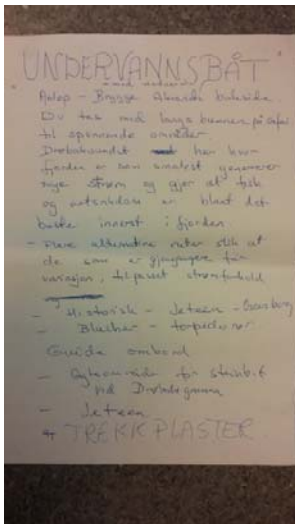 UNDERVANNSBÅT
Avløp - Brygge Akvariet baksida
Du tas med langs bunnen på safari
til spennende områder
Drøbaksundet har hvor
fjorden er som smalest genererer
mye strøm og gjør at fisk
og artsrikdom er blant det
beste innerst i fjorden
- Flere alternative ruter slik at
de som er gjengangere får
variasjon, tilpasset strømforhold
- Historisk - Jeteen - Oscarsborg
- Blücher - torpedoer
Guide ombord
- Gyteområde for steinbit
ved Drøbakgrunna
- Jeteen
TREKKPLASTER